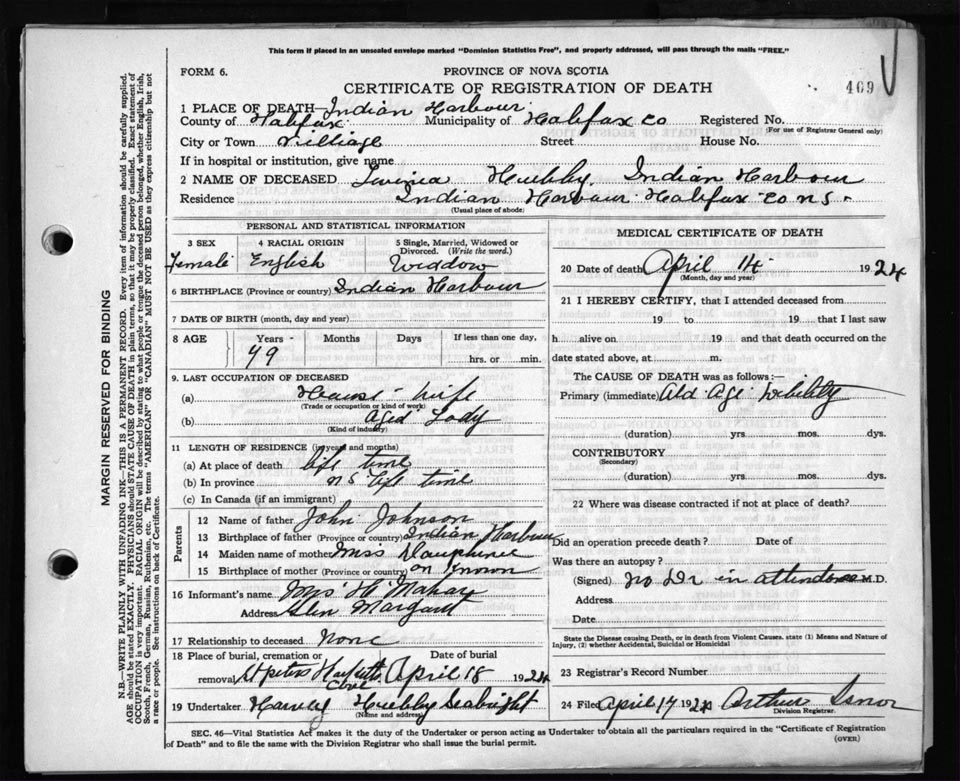 This form if placed in an unsealed envelope marked "Dominion Statistics Free", and properly addressed, will pass through the mails "FREE."
FORM 6.
PROVINCE OF NOVA SCOTIA
CERTIFICATE OF REGISTRATION OF DEATH
469
1 PLACE OF DEATH—Indian Harbour
County of Halifax Municipality of Halifax Co Registered No.
(For use of Registrar General only)
City or Town Villiage Street House No.
If in hospital or institution, give name
2 NAME OF DECEASED Hubby. Indian Harbour
Residence Indian Harbour Halifax Co N S.
(Usual place of abode)
PERSONAL AND STATISTICAL INFORMATION
3 SEX 4 RACIAL ORIGIN 5 Single, Married, Widowed or Divorced. (Write the word.)
Female English Widdow
6 BIRTHPLACE (Province or country) Indian Harbour
7 DATE OF BIRTH (month, day and year)
8 AGE Years Months Days If less than one day,
79 hrs. or min.
9. LAST OCCUPATION OF DECEASED
(a) House wife
(Trade or occupation or kind of work)
(b) Aged Lady
(Kind of industry)
11 LENGTH OF RESIDENCE (in years and months)
(a) At place of death life time
(b) In province N S life time
(c) In Canada (if an immigrant)
Parents
12 Name of father John Johnson
13 Birthplace of father (Province or country) Indian Harbour
14 Maiden name of mother Miss Dauphinee
15 Birthplace of mother (Province or country) on known
16 Informant's name Mrs H
Address Glen Margaret
17 Relationship to deceased None
18 Place of burial, cremation or removal St peters Hacketts Cove
Date of burial
April 18 1924
19 Undertaker Harvey Hubby Seabright
(Name and address)
MEDICAL CERTIFICATE OF DEATH
20 Date of death April 14 1924
(Month, day and year)
21 I HEREBY CERTIFY, that I attended deceased from
19 to 19 that I last saw
h alive on 19 and that death occurred on the
date stated above, at m.
The CAUSE OF DEATH was as follows:—
Primary (immediate) Old Age Debility
(duration) yrs. mos. dys.
CONTRIBUTORY
(Secondary)
(duration) yrs. mos. dys.
22 Where was disease contracted if not at place of death?
Did an operation precede death? Date of
Was there an autopsy?
(Signed) No Dr in attendance M.D.
Address
Date
State the Disease causing Death, or in death from Violent Causes. state (1) Means and Nature of
Injury, (2) whether Accidental, Suicidal or Homicidal
23 Registrar's Record Number
24 Filed April 17 1924 Arthur Isnor
Division Registrar.
SEC. 46—Vital Statistics Act makes it the duty of the Undertaker or person acting as Undertaker to obtain all the particulars required in the "Certificate of Registration
of Death" and to file the same with the Division Registrar who shall issue the burial permit.
(OVER)
MARGIN RESERVED FOR BINDING
N.B.—WRITE PLAINLY WITH UNFADING INK—THIS IS A PERMANENT RECORD. Every item of information should be carefully supplied.
AGE should be stated EXACTLY. PHYSICIANS should STATE CAUSE OF DEATH in plain terms, so that it may be properly classified. Exact statement of
OCCUPATION is very important. RACIAL ORIGIN will be described by stating to what people or tongue the deceased person belonged, whether English, Irish,
Scotch, French, German, Russian, Ruthenian, etc. The terms "AMERICAN" or "CANADIAN" MUST NOT BE USED as they express citizenship but not
a race or people. See instructions on back of Certificate.